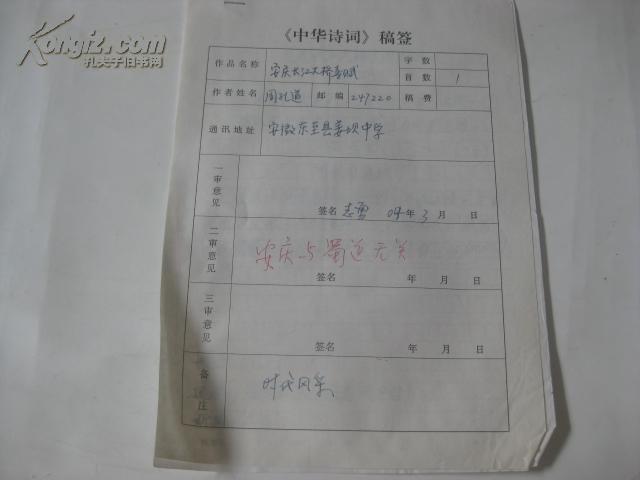 Kongfz.com
孔夫子旧书网
《中华诗词》稿签
作品名称 安庆长江大桥喜赋 字数
首数 1
作者姓名 周礼道 邮编 247220 稿费
通讯地址 安徽东至县姜坝中学
一审意见
签名 志勇 04年3月 日
二审意见 安庆与蜀道无关
签名 年 月 日
三审意见
签名 年 月 日
备注 时代风采